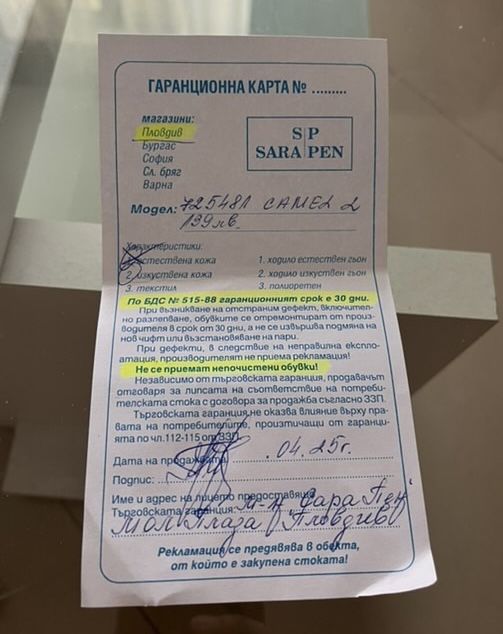 ГАРАНЦИОННА КАРТА № .........
магазини:
Пловдив
Бургас
София
Сл. бряг
Варна
S|P
SARA|PEN
Модел: 725481 CAMEL 2
139лв.
Характеристики:
1. естествена кожа
2. изкуствена кожа
3. текстил
1. ходило естествен гьон
2. ходило изкуствен гьон
3. полиоретен
По БДС № 515-88 гаранционният срок е 30 дни.
При възникване на отстраним дефект, включително разлепване, обувките се отремонтират от производителя в срок от 30 дни, а не се извършва подмяна на нов чифт или възстановяване на пари.
При дефекти, в следствие на неправилна експлоатация, производителят не приема рекламация!
Не се приемат непочистени обувки!
Независимо от търговската гаранция, продавачът отговаря за липсата на съответствие на потребителската стока с договора за продажба съгласно ЗЗП.
Търговската гаранция не оказва влияние върху правата на потребителите, произтичащи от гаранцията по чл.112-115 от ЗЗП.
Дата на продажбата .04.25г.
Подпис:
Име и адрес на лицето предоставящо
Търговската гаранция: м-н "Сара Пен"
Мол Плаза Пловдив
Рекламация се предявява в обекта,
от който е закупена стоката!